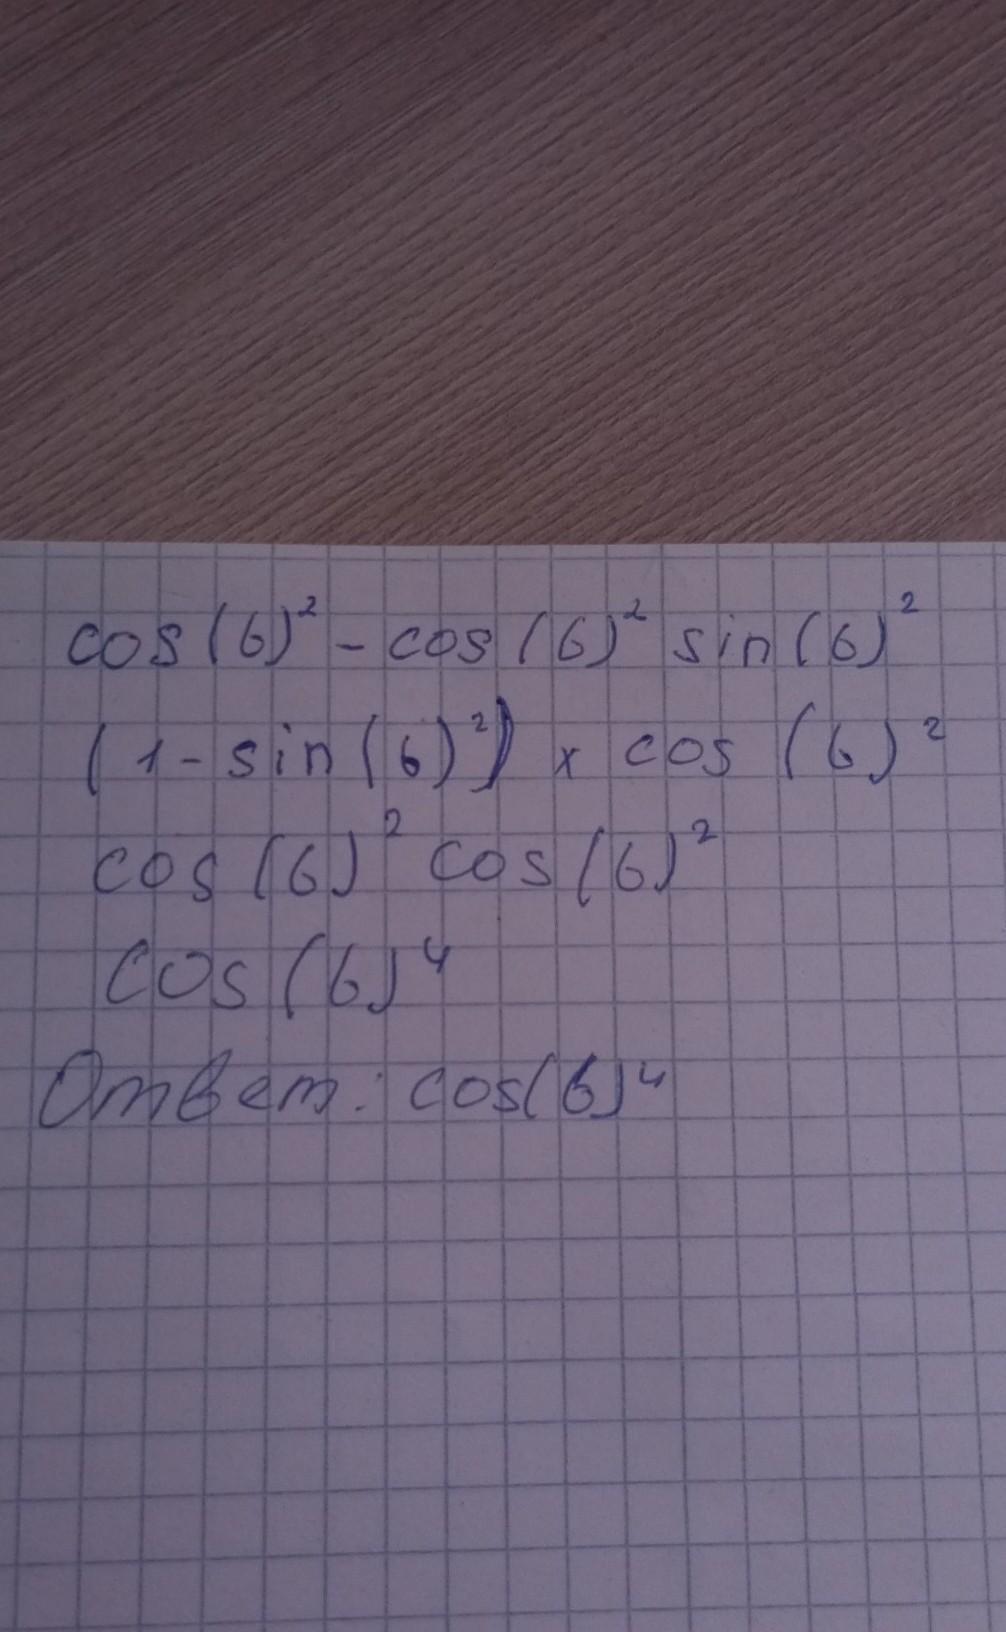 cos(6)² - cos(6)² sin(6)²
(1 - sin(6)²) × cos(6)²
cos(6)² cos(6)²
cos(6)⁴
Ответ: cos(6)⁴